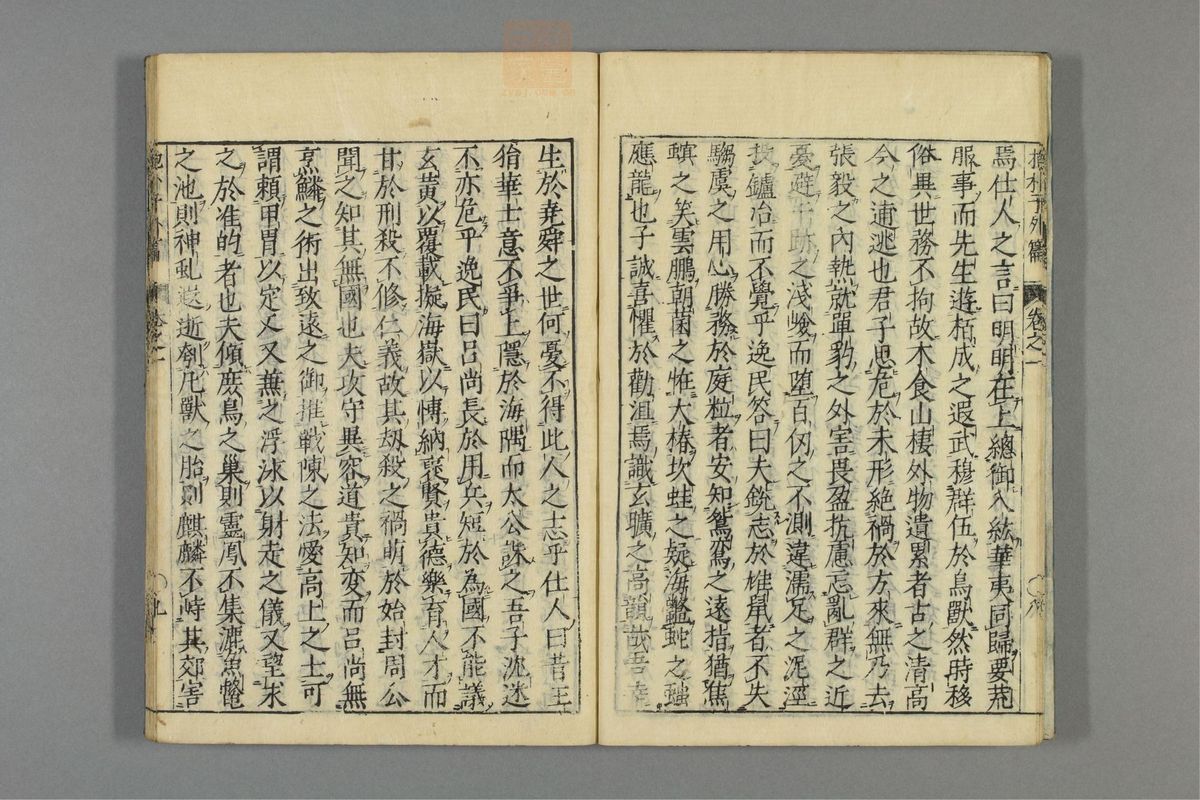 抱朴子外篇 卷之一 〇八
焉仕人之言曰明明在上總御八紘華夷同歸要荒
服事而先生遊栢成之遐武穆群伍於鳥獸然時移
俗異世務不拘故木食山棲外物遺累者古之清高
今之逋逃也君子思危於未形絶禍於方來無乃去
張毅之內熱就單豹之外害畏盈抗慮忘亂群之近
憂避牛跡之淺嶮而墮百仞之不測違濡足之泥涇
投鑪冶而不覺乎逸民答曰夫銳志於雛鼠者不失
騶虞之用心勝務於庭粒者安知鴛鸞之遠指猶焦
螟之笑雲鵬朝菌之恠大椿坎蛙之疑海鼈虵之嗤
應龍也子誠喜懼於勸沮焉識玄曠之高韻哉吾幸
生於堯舜之世何憂不得此人之志乎仕人曰昔狂
狷華士意不爭上隱於海隅而太公誅之吾子沈迷
不亦危乎逸民曰呂尚長於用兵短於為國不能議
玄黃以覆載擬海嶽以愽納襃賢貴德樂育人才而
甘於刑殺不修仁義故其刼殺之禍萌於始封周公
聞之知其無國也夫攻守異容道貴知变而呂尚無
烹鱗之術出致遠之御推戰陳之法愛高上之士可
謂賴甲冑以定又又無之浮泳以射走之儀又望求
之於准的者也夫傾庶鳥之巢則靈鳳不集漉魚鼈
之池則神虬遐逝刳凡獸之胎則麒麟不峙其郊害
卷之一 〇九